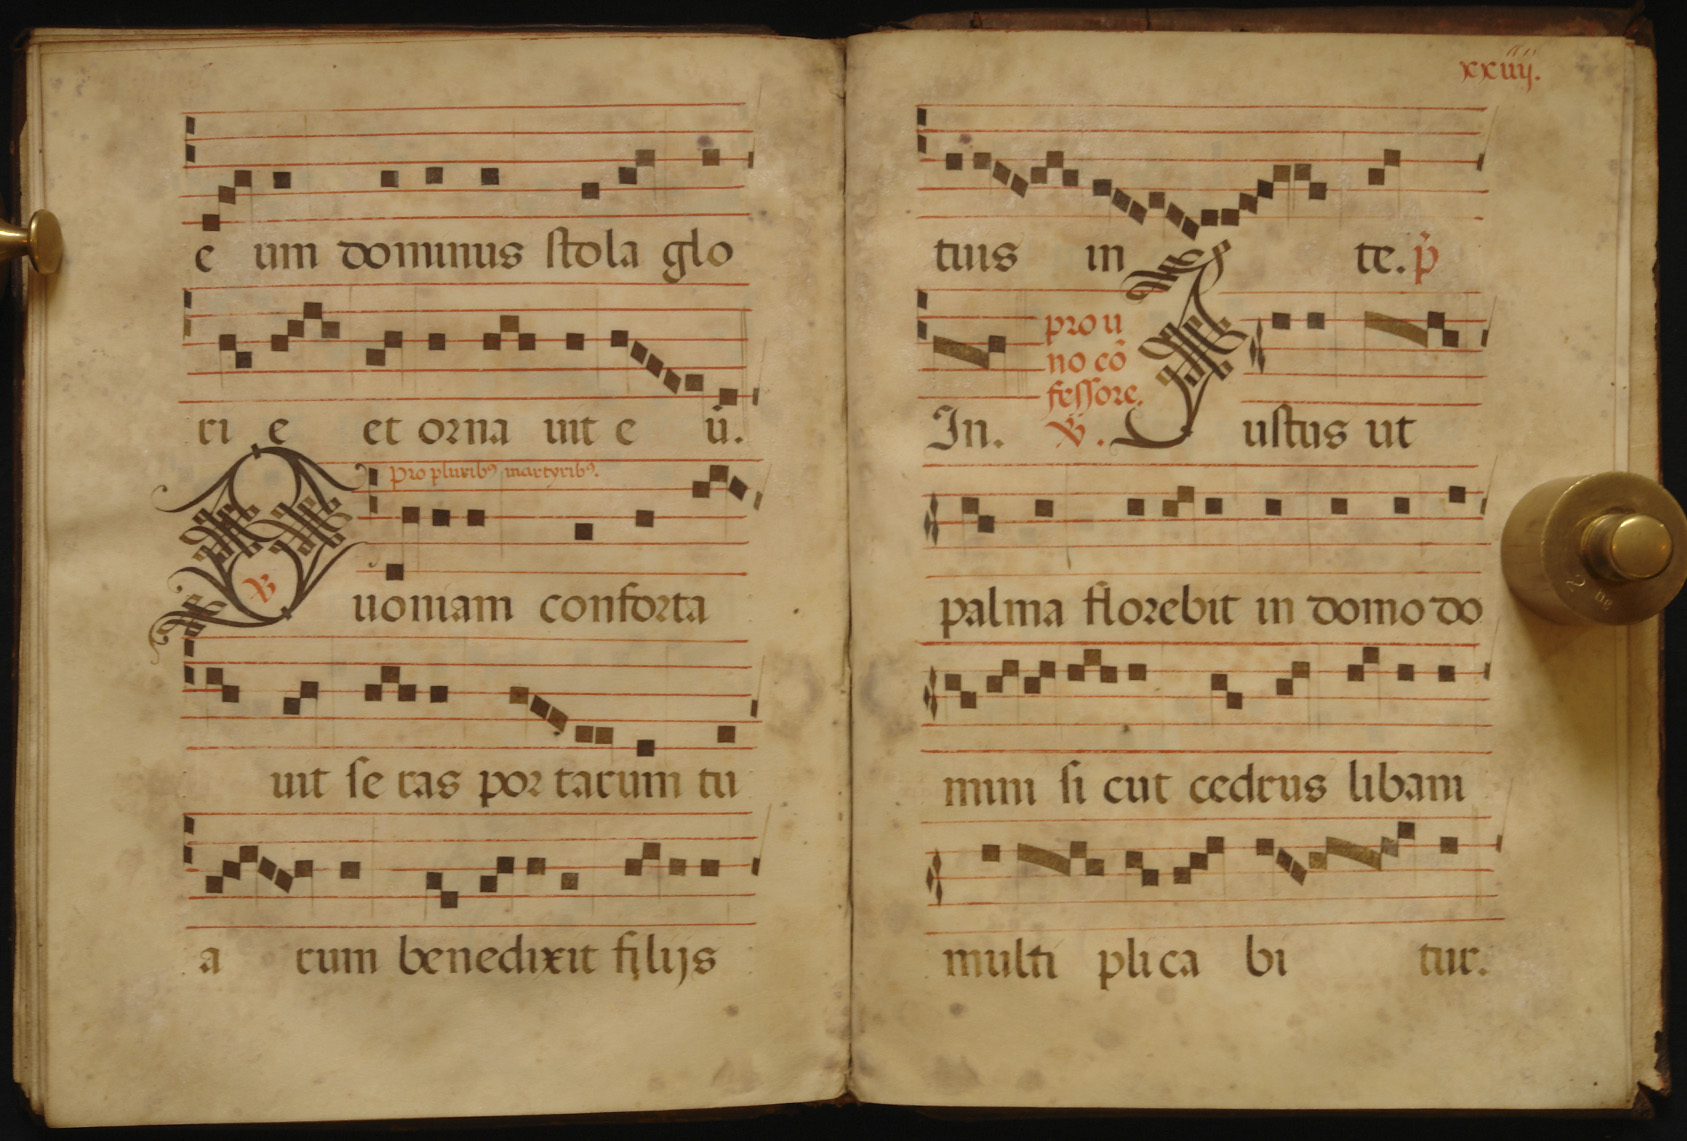 e um dominus stola glo
ri e et orna uit e ū.
Pro pluribꝰ martyribꝰ.
Q
℣
uoniam conforta
uit se ras por tarum tu
a rum benedixit filijs
xxiiij.
tuis in te. p̄
pro u
no cō
fessore.
In. ℣. I ustus ut
palma florebit in domo do
mini si cut cedrus libani
multi pli ca bi tur.